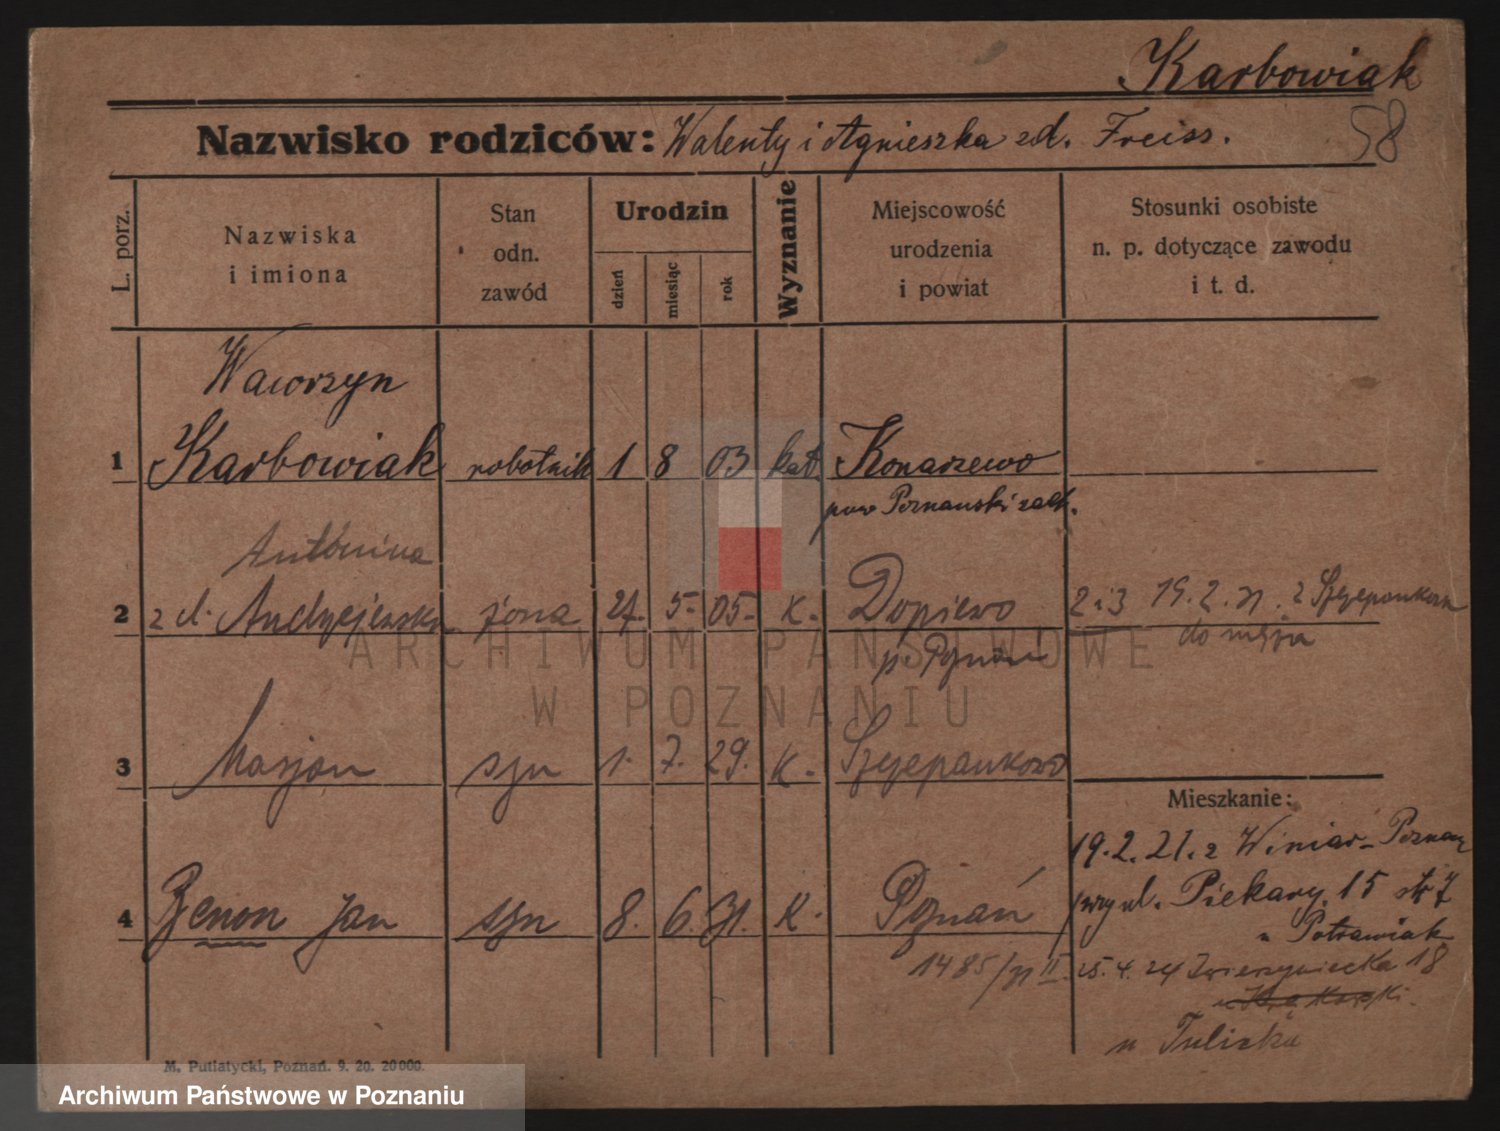 Karbowiak
Nazwisko rodziców: Walenty i Agnieszka zd. Freiss.
58
L. porz.
Nazwiska
i imiona
Stan
odn.
zawód
Urodzin
dzień
miesiąc
rok
Wyznanie
Miejscowość
urodzenia
i powiat
Stosunki osobiste
n. p. dotyczące zawodu
i t. d.
Wawrzyn
1 Karbowiak robotnik 1 8 03 kat. Konarzewo
pow Poznański zach.
Antonina
2 z d. Andrzejewska żona 27. 5. 05. k. Dopiewo 2 i 3 19.2.31. z Szczepankowa
do męża
p. Poznań
ARCHIWUM PAŃSTWOWE
W POZNANIU
3 Marjan syn 1. 7. 29. k. Szczepankowo
Mieszkanie:
19.2.21. z Winiar - Poznań
4 Zenon Jan syn 8. 6. 31. k. Poznań
przy ul. Piekary 15 str 7
u Potrawiak
1485/31 II. 25.4.24 Zwierzyniecka 18
u Tulicka
M. Putiatycki, Poznań. 9. 20. 20000.
Archiwum Państwowe w Poznaniu